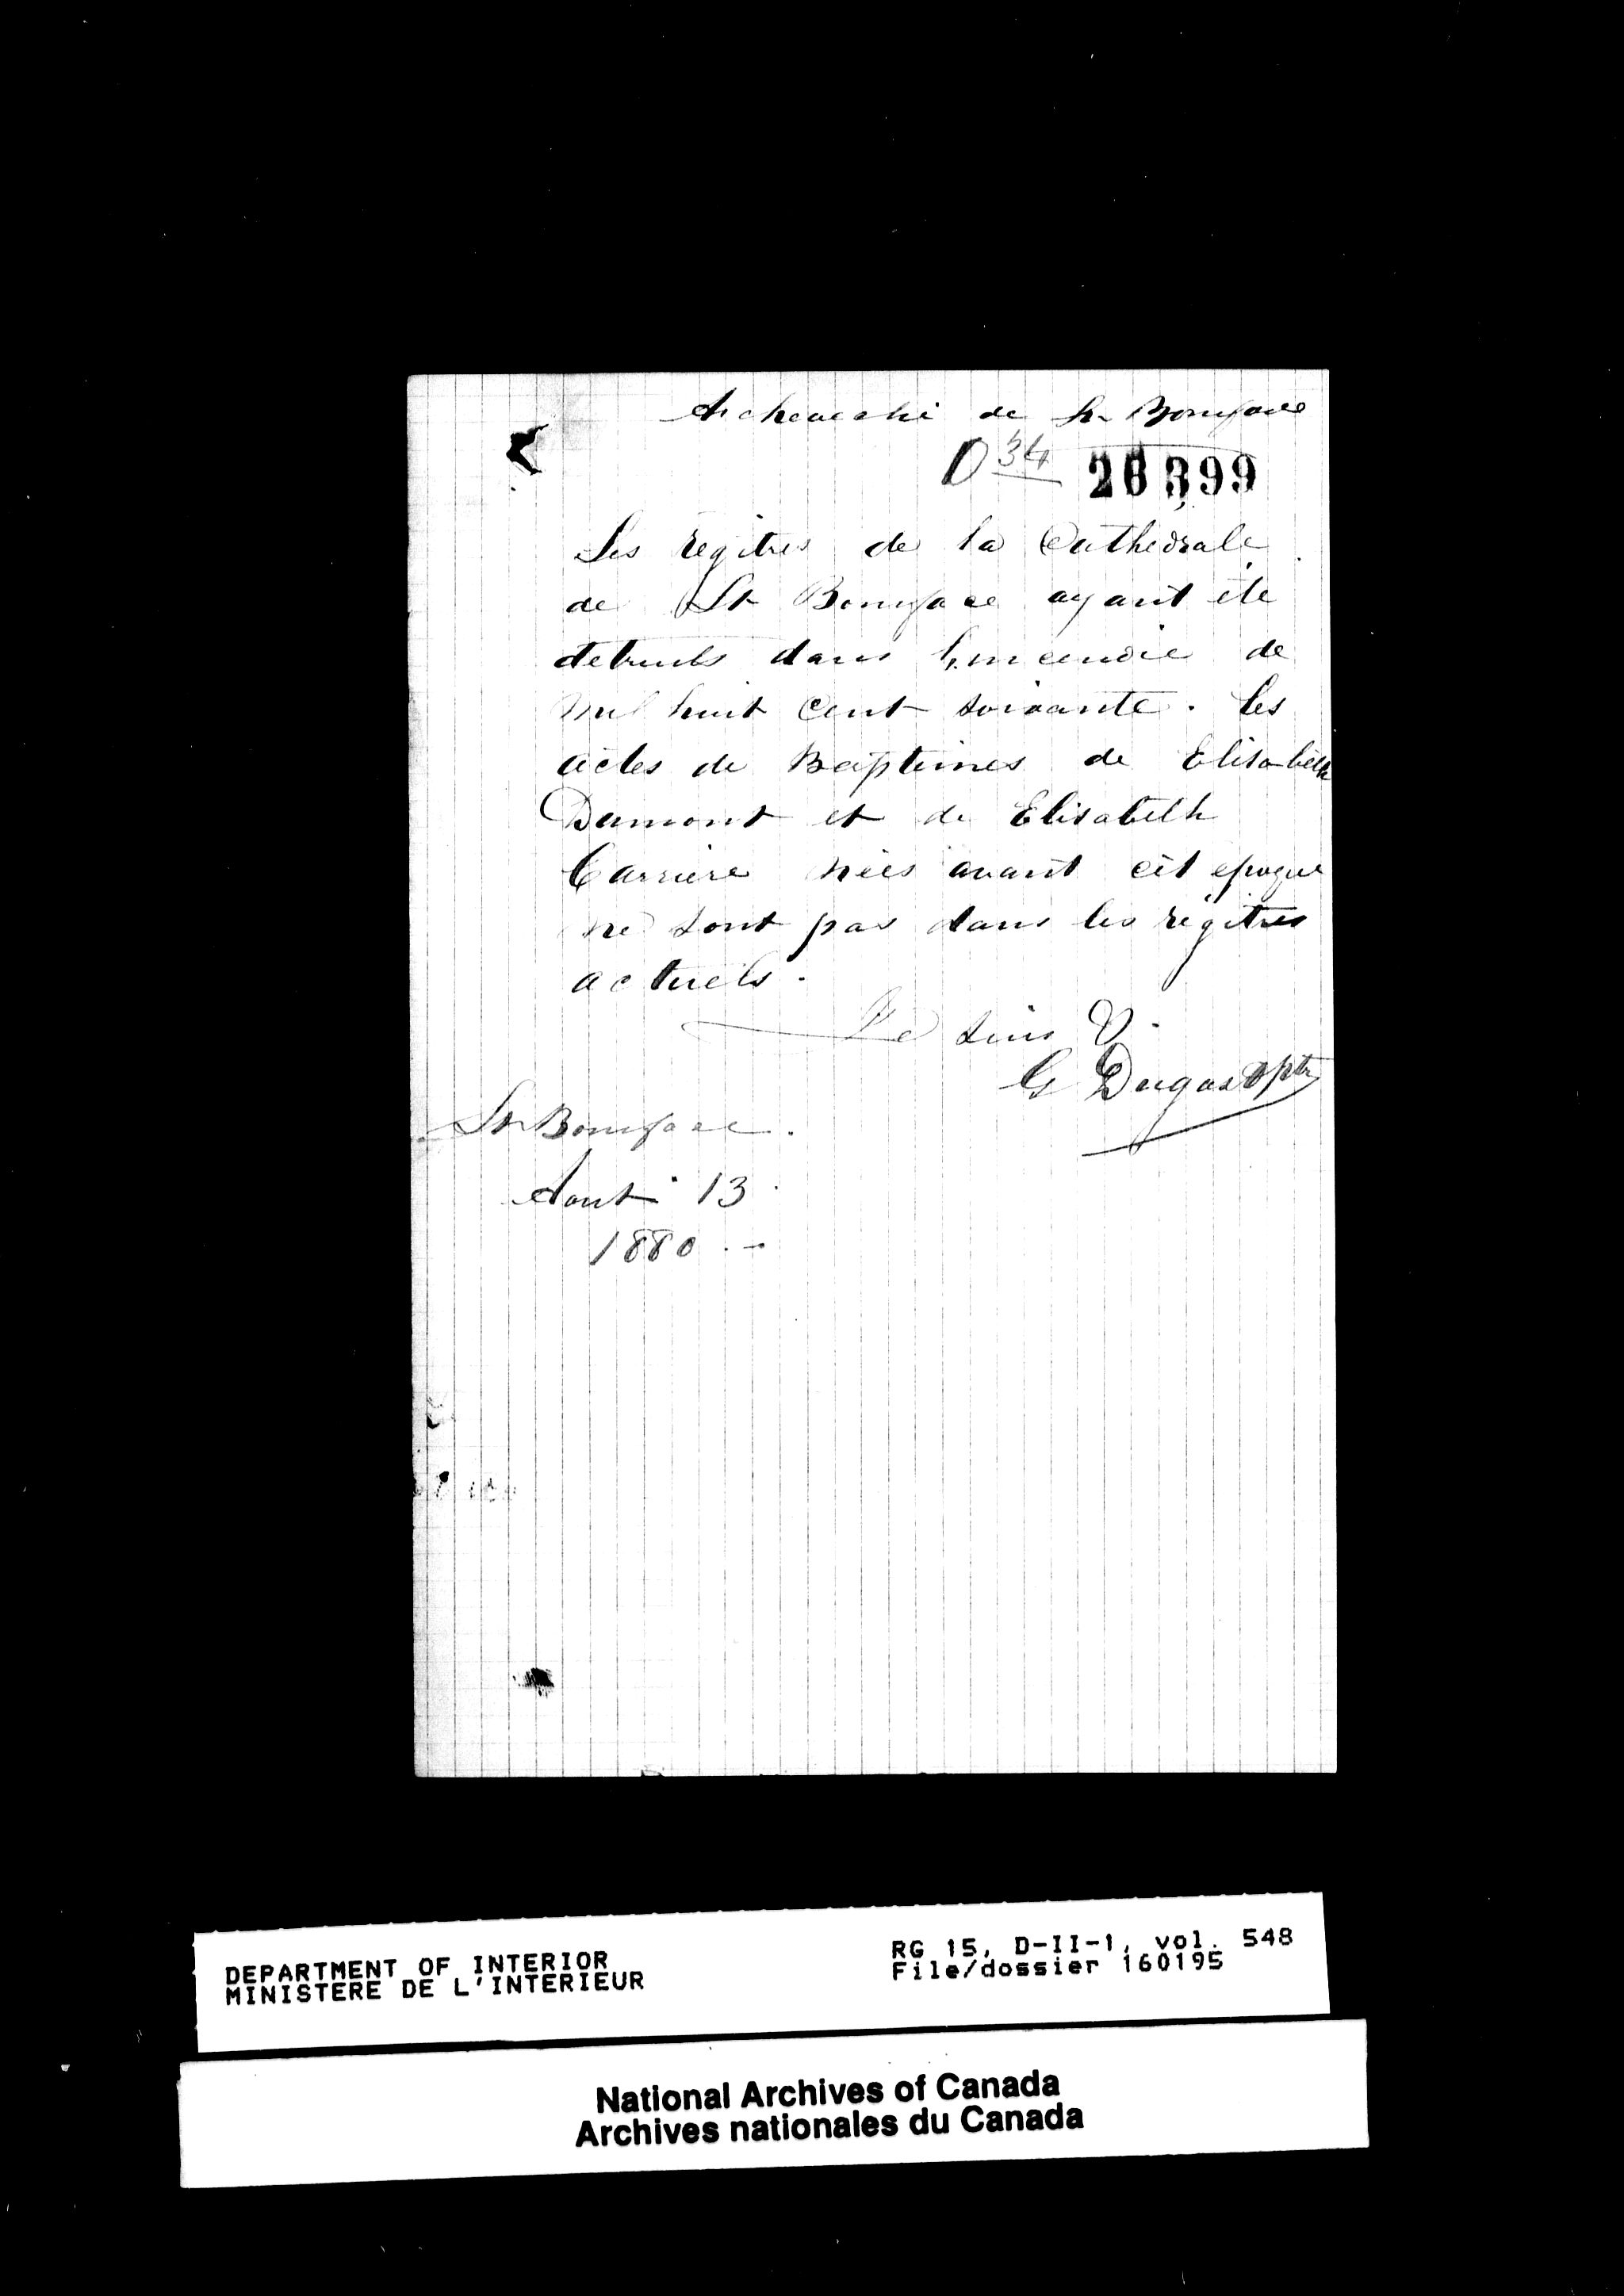 Archeveché de St Boniface
D 34 26399
Les régitres de la Cathédrale
de St Boniface ayant été
detruits dans l'incendie de
mil huit cent soixante. Les
actes de Baptêmes de Elisabeth
Dumont et de Elisabeth
Carriere nées avant cet epoque
ne sont pas dans les régitres
actuels.
G Dugast ptr
St Boniface.
Aout 13
1880.-
DEPARTMENT OF INTERIOR
MINISTERE DE L'INTERIEUR
RG 15, D-II-1, vol. 548
File/dossier 160195
National Archives of Canada
Archives nationales du Canada